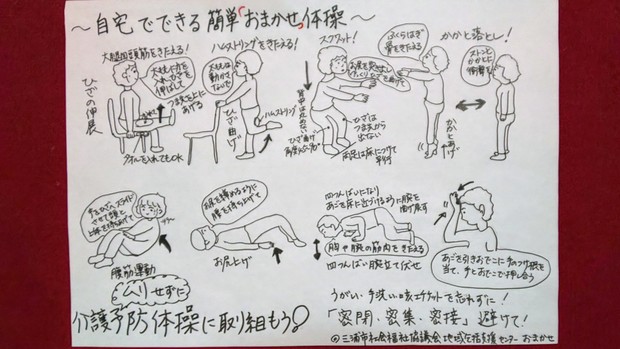 ～自宅でできる簡単「おまかせ」体操～
大腿四頭筋をきたえる！
ひざの伸展
大腿に力を入れひざを伸ばして
つま先を上にあげる
タオルを入れてもOK
ハムストリングをきたえる！
大腿は動かさないで
ひざ曲げ
ハムストリング
スクワット！
お尻を突き出しゆっくりひざを曲げて
背中は丸めない
ひざはつま先から出ない
両足は床につけて平行
かかと落とし！
ふくらはぎ骨をきたえる
ストンとかかとに衝撃を
かかとあげ
手をひざへスライドさせて頭と上体を持ち上げて
腹筋運動
お尻を締めるように腰を持ち上げて
お尻上げ
四つんばいになりあごを床に近づけるように腕を曲げ戻す
胸や腕の筋肉をきたえる
四つんばい腕立て伏せ
あごを引きおでこに手のつけ根を当て、手とおでこで押し合う
ムリせずに
介護予防体操に取り組もう！
うがい・手洗い・咳エチケットを忘れずに！
「密閉・密集・密接」避けて！
@三浦市社会福祉協議会地域包括支援センターおまかせ